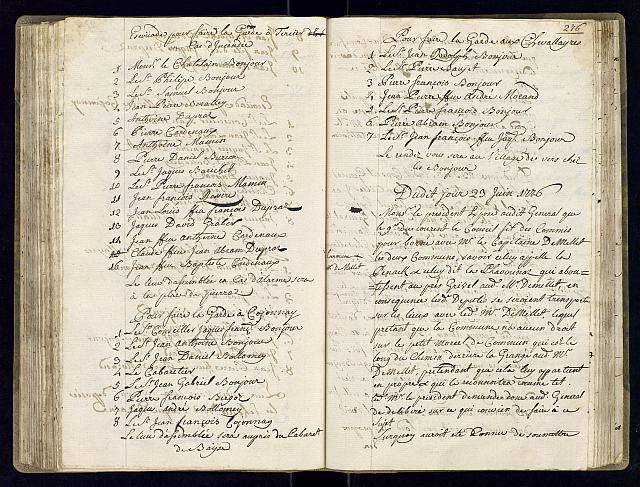 pour faire la Garde à
Cas d'Incendie
1 Monsr le Chatelain Bonjour
2 Le Sr Philipe Bonjour
3 Le Sr Samuel Bonjour
4 Jean Pierre
5 Anthoine Dupraz
6 Pierre Cordenaux
7 Anthoine Mamin
8 Pierre Daniel
9 Le Sr Jaques
10 Le Sr Pierre françois Mamin
11 Jean françois
12 Jean Louis ffeu françois Dupraz
13 Jaques David
14 Jean ffeu Anthoine Cordenaux
15 Claude ffeu Jean Abram Dupraz
16 Jean ffeu Baptiste Cordenaux
Le lieu d'assemblée en Cas d'alarme sera
à la place du
Pour faire la Garde à Cojonnay
1 Le Sr Conseiller Jaques franç Bonjour
2 Le Sr Jean Anthoine Bonjour
3 Le Sr Jean Daniel Bollomey
4 Le Cabaretier
5 Le Sr Jean Gabriel Bonjour
6 Pierre françois
7 Jaques André Bollomey
8 Le Sr Jean françois Cojonnay
Le lieu d'assemblée sera auprès du Cabaret
de
276
Pour faire la Garde aux Chevallayres
1 Le Sr Jean Rodolph Bonjour
2 Le Sr Pierre
3 Pierre françois Bonjour
4 Jean Pierre ffeu André Morand
5 Le Sr Pierre françois Bonjour
6 Pierre Abram Bonjour
7 Le Sr Jean françois ffeu Bonjour
Le rendez vous sera au village des vers chez
les Bonjour
Dudit Jour 23 Juin 1776
Monsr le president Expose audit General que
le Courant le Conseil fit des Commis
pour borner avec Mr le Capitaine DeMellet
les deux Communs, savoir celuy appellé la
& celuy dit la que abou=
=tissent au près Grivel audt Mr Demellet, en
consequence lesdt Deputés se seroient transportés
sur les lieux avec ledt Mr DeMellet lequel
pretend que la Commune n'a aucun droit
sur le petit Morcel de Commun qui est le
long du Chemin derriere la Grange audt Mr
DeMellet, pretendant que cela luy appartient
en propre & qui le reconnoitra comme tel.
Ledt Mr le president demande donc audt General
de deliberer sur ce qui convient de faire à ce
Sujet
auroit été Connu de soumettre